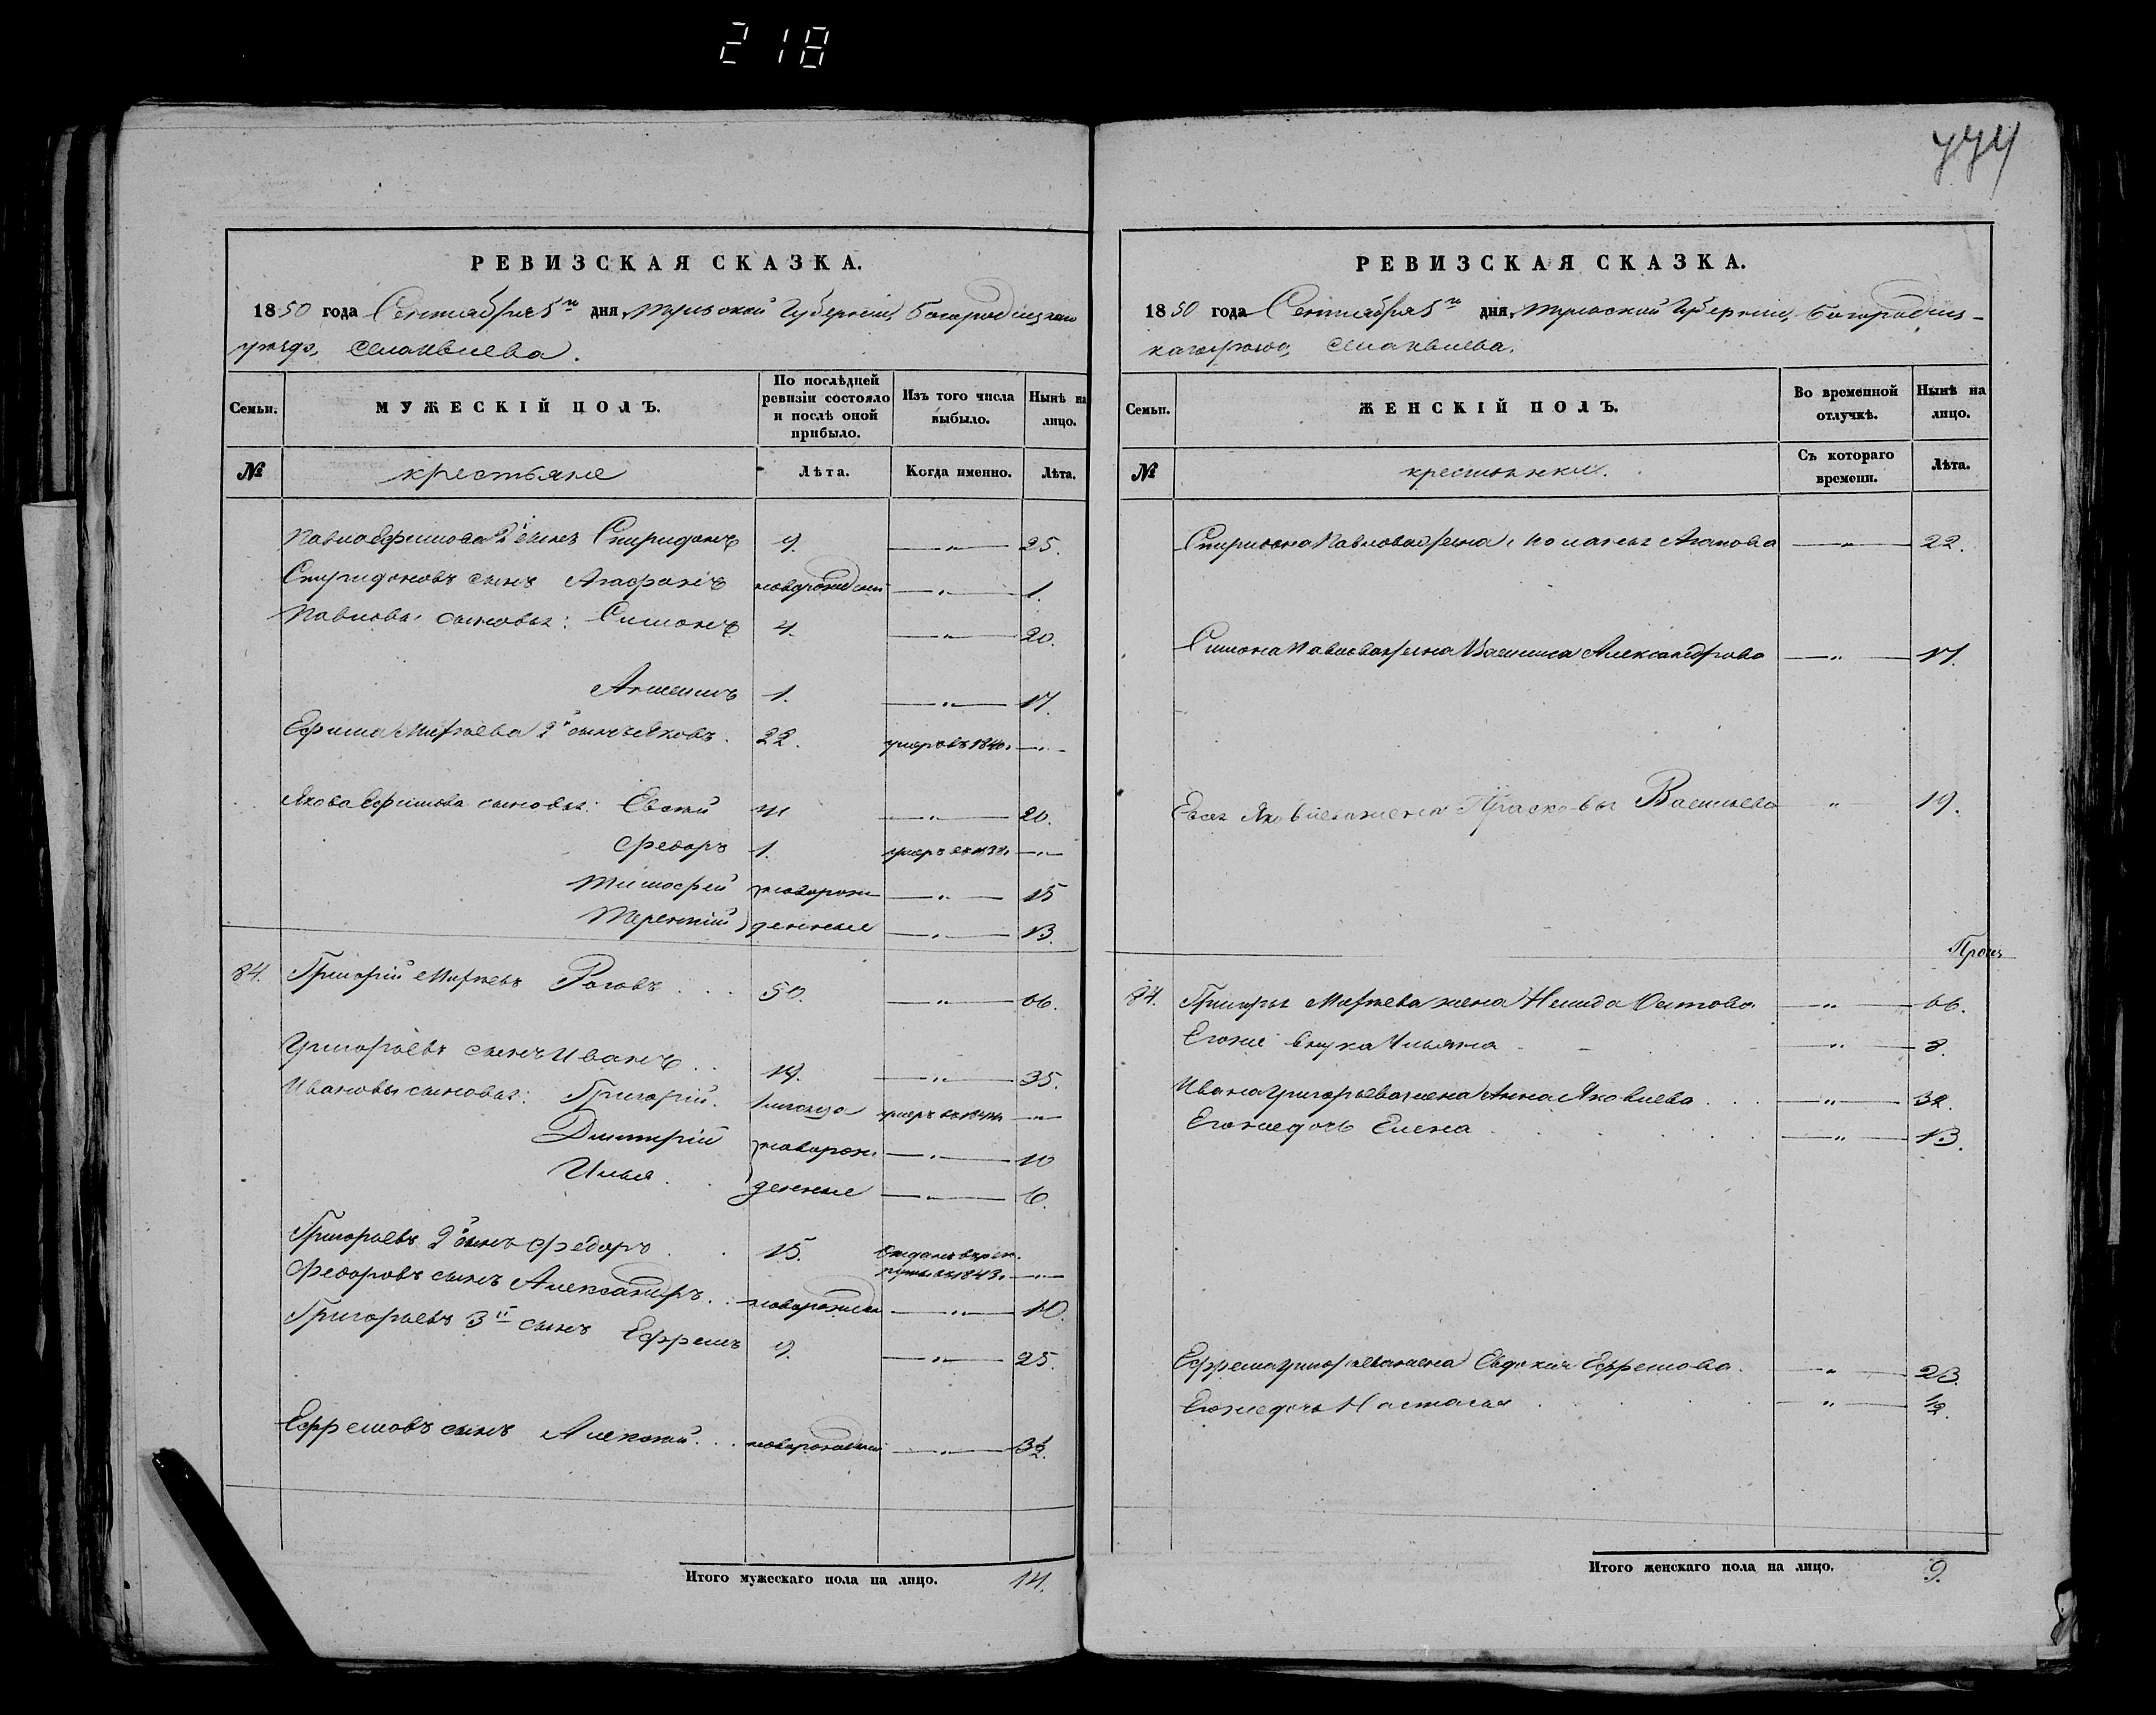 218
774
РЕВИЗСКАЯ СКАЗКА.
1850 года Сентября 5го дня, Тульской Губернии, Богородицкаго
уѣзда,
Семьи.
МУЖЕСКІЙ ПОЛЪ.
По послѣдней ревизіи состояло и послѣ оной прибыло.
Изъ того числа выбыло.
Нынѣ на лицо.
№
крестьяне
Лѣта.
Когда именно.
Лѣта.
Павла Ефимова 2й сынъ Спиридонъ 9. —"— 25.
Спиридоновъ сынъ новорожденный —"— 1.
Павловы сыновья: Симонъ 4. —"— 20.
1. —"— 17.
Ефима 2й сынъ Яковъ. 22. умеръ въ 1840. —"—
Якова Ефимова сыновья: Евсей 4 —"— 20.
Федоръ 1. умеръ въ —"—
Тимофей новорож —"— 15
Терентий) денные —"— 13.
84. Григорій Роговъ . . . 50. —"— 66.
Григорьевъ сынъ Иванъ . . 19. —"— 35.
Ивановы сыновья: Григорій. 1 месяца умеръ въ —"—
Дмитрій новорож. —"— 10
Илья . . денные —"— 6.
Григорьевъ 2й сынъ Федоръ . . 15. Отданъ въ рек
руты въ 1843. —"—
Федоровъ сынъ Александръ . . новорожден —"— 10.
Григорьевъ 3й сынъ Ефремъ 9. —"— 25.
Ефремовъ сынъ Алексей . . . новорожденный —"— 3½.
Итого мужескаго пола на лицо. 14.
РЕВИЗСКАЯ СКАЗКА.
1850 года Сентября 5го дня, Тульской Губернии, Богородиц-
каго уѣзда,
Семьи.
ЖЕНСКІЙ ПОЛЪ.
Во временной отлучкѣ.
Нынѣ на лицо.
№
крестьянки.
Съ котораго времени.
Лѣта.
Спиридона Павлова жена, Агапова —"— 22.
Симона Павлова жена Василиса Александрова —"— 17.
Евсея Яковлева жена Прасковья Васильева " 19.
84. Григорья жена —"— 66.
Егоже внука Ульяна —"— 8.
Ивана Григорьева жена Анна Яковлева . . —"— 32.
Егоже дочь Елена —"— 13.
Ефрема Григорьева жена Евдокия Ефремова. —"— 23.
Егоже дочь Настасья —"— ½.
Итого женскаго пола на лицо. 9.